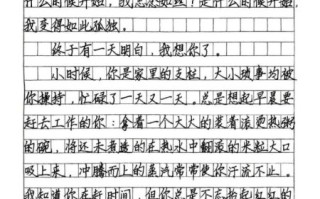 什么的候开始，我总忽如丝！是什么的候开始，
我变得如此孤独。
终于有一天明白，我想你了。
小时候，你是家里的支柱，大小琐事均被
你操持，忙碌了一天又一天。总是想起早晨要
赶去工作的你：拿着一个大大的装着滚烫热粥
的碗，将还未煮透的在热水中翻滚的米粒大口
吸上来，冲腾而上的蒸汽常常使你汗流不止。
我知道你在赶时间，但你总是不忘扬起红红的